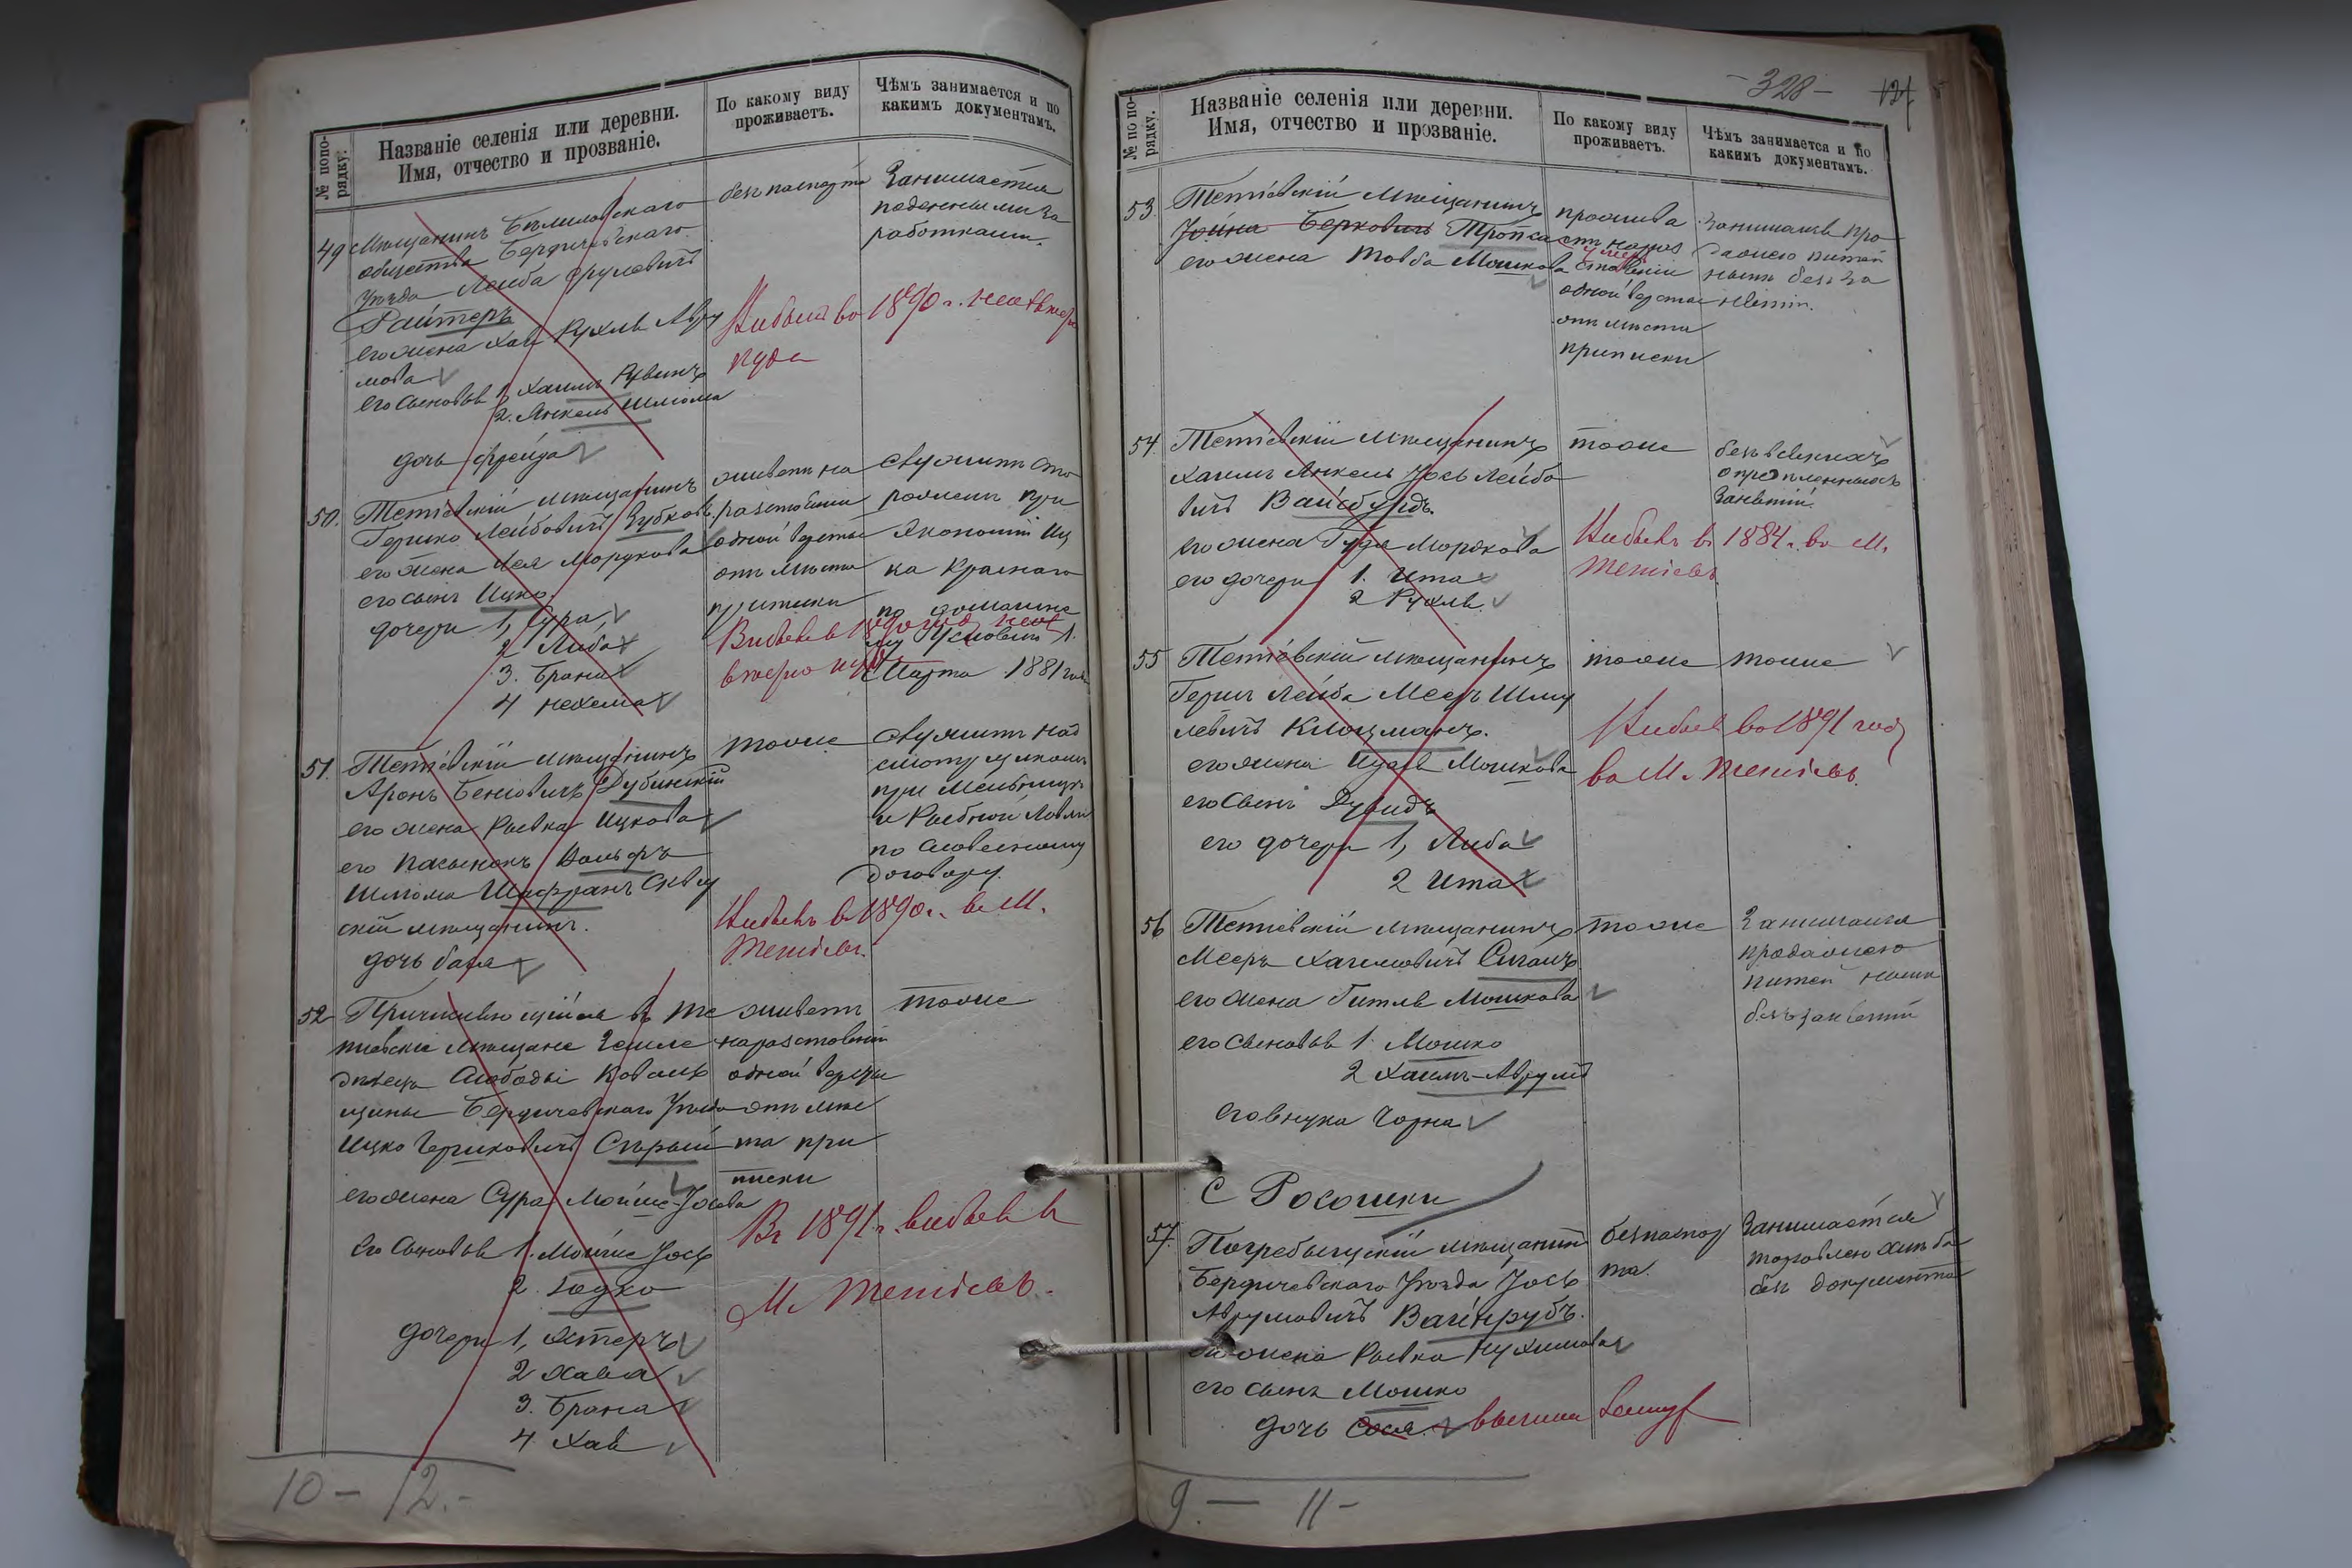 № попо-
рядку.
Названіе селенія или деревни.
Имя, отчество и прозваніе.
По какому виду
проживаетъ.
Чѣмъ занимается и по
какимъ документамъ.
49 Мѣщанинъ Бѣлиловскаго
общества Бердичевскаго
уѣзда Лейба Срулевичъ
Райтеръ
его жена Хая Рухля Авру
мова
его сыновья 1, Хаимъ Рувинъ
2. Янкель Шлиома
дочь Фрейда
безъ паспорта
Занимается
поденными за
работками.
Выбылъ въ 1890 г. неизвѣстно
куда
50. Тетіевскій мѣщанинъ
Гершко Лейбовичъ Зубковъ
его жена Хая Мордкова
его сынъ Ицко.
дочери 1, Сура,
2 Либа
3. Брана
4 Нехема
живетъ на
разстояніи
одной версты
отъ мѣста
приписки
служитъ сто
рожемъ при
экономіи Иц
ка Краснаго
по домашне
му условію 1.
Марта 1881 года
51. Тетіевскій мѣщанинъ
Аронъ Беніовичъ Дубинскій
его жена Рывка Ицкова
его пасынокъ Вольфъ
Шліома Шафранъ Сквир
скій мѣщанинъ.
дочь Бася
тоже
служитъ над
смотрщикомъ
при мельницѣ
и рыбной ловли
по словесному
договору.
Выбылъ въ 1890 г. въ м.
Тетіевъ.
52 Причисляющійся въ Те
тіевскіе мѣщане Земле
дѣлецъ Слободы Коваль
щины Бердичевскаго уѣзда
Ицко Гершковичъ Сѣрый
его жена Сура Мойше-Іосева
его сыновья 1. Мойше Іось
2. Годко
дочери 1, Эстеръ
2 Хава
3. Брана
4 Хая
живетъ
на разстояніи
одной версты
отъ мѣс
та при
писки
тоже
Въ 1891 г. выбылъ въ
м. Тетіевъ.
10 — 12.-
- 328 -
№ по по-
рядку.
Названіе селенія или деревни.
Имя, отчество и прозваніе.
По какому виду
проживаетъ.
Чѣмъ занимается и по
какимъ документамъ.
53. Тетіевскій мѣщанинъ
Іойна Берковичъ Тропса
его жена Товба Мошкова
прожива
етъ на раз
стояніи
одной версты
отъ мѣста
приписки
занимаясь про
дажею питей
нымъ безъ за
нятій.
54. Тетіевскій мѣщанинъ
Хаимъ Янкель Іось Лейбо
вичъ Вайсбурдъ.
его жена Гудя Мордкова
его дочери 1. Ита
2 Рухля.
тоже
безъ всякихъ
опредѣленныхъ
занятій.
Выбылъ въ 1884 г. въ м.
Тетіевъ
55 Тетіевскій мѣщанинъ
Гершъ Лейба Мееръ Шму
левичъ Клоцманъ.
его жена Цудя Мошкова
его сынъ Дувидъ
его дочери 1, Либа
2 Ита
тоже
тоже
Выбылъ въ 1891 году
въ м. Тетіевъ.
56 Тетіевскій мѣщанинъ
Мееръ Хаимовичъ Сиганъ
его жена Гитля Мошкова
его сыновья 1. Мошко
2 Хаимъ-Аврумъ
его внука Чорна
тоже
Занимаясь
продажею
питей нынѣ
безъ занятій
С Росошки
57. Погребыщскій мѣщанинъ
Бердичевскаго уѣзда Іось
Аврумовичъ Вайнрубъ.
его жена Рывка Нухимова
его сынъ Мошко
дочь Сося. вышла замужъ
безъ паспор
та.
Занимается
торговлею хлѣба
безъ документа
9. — 11 -